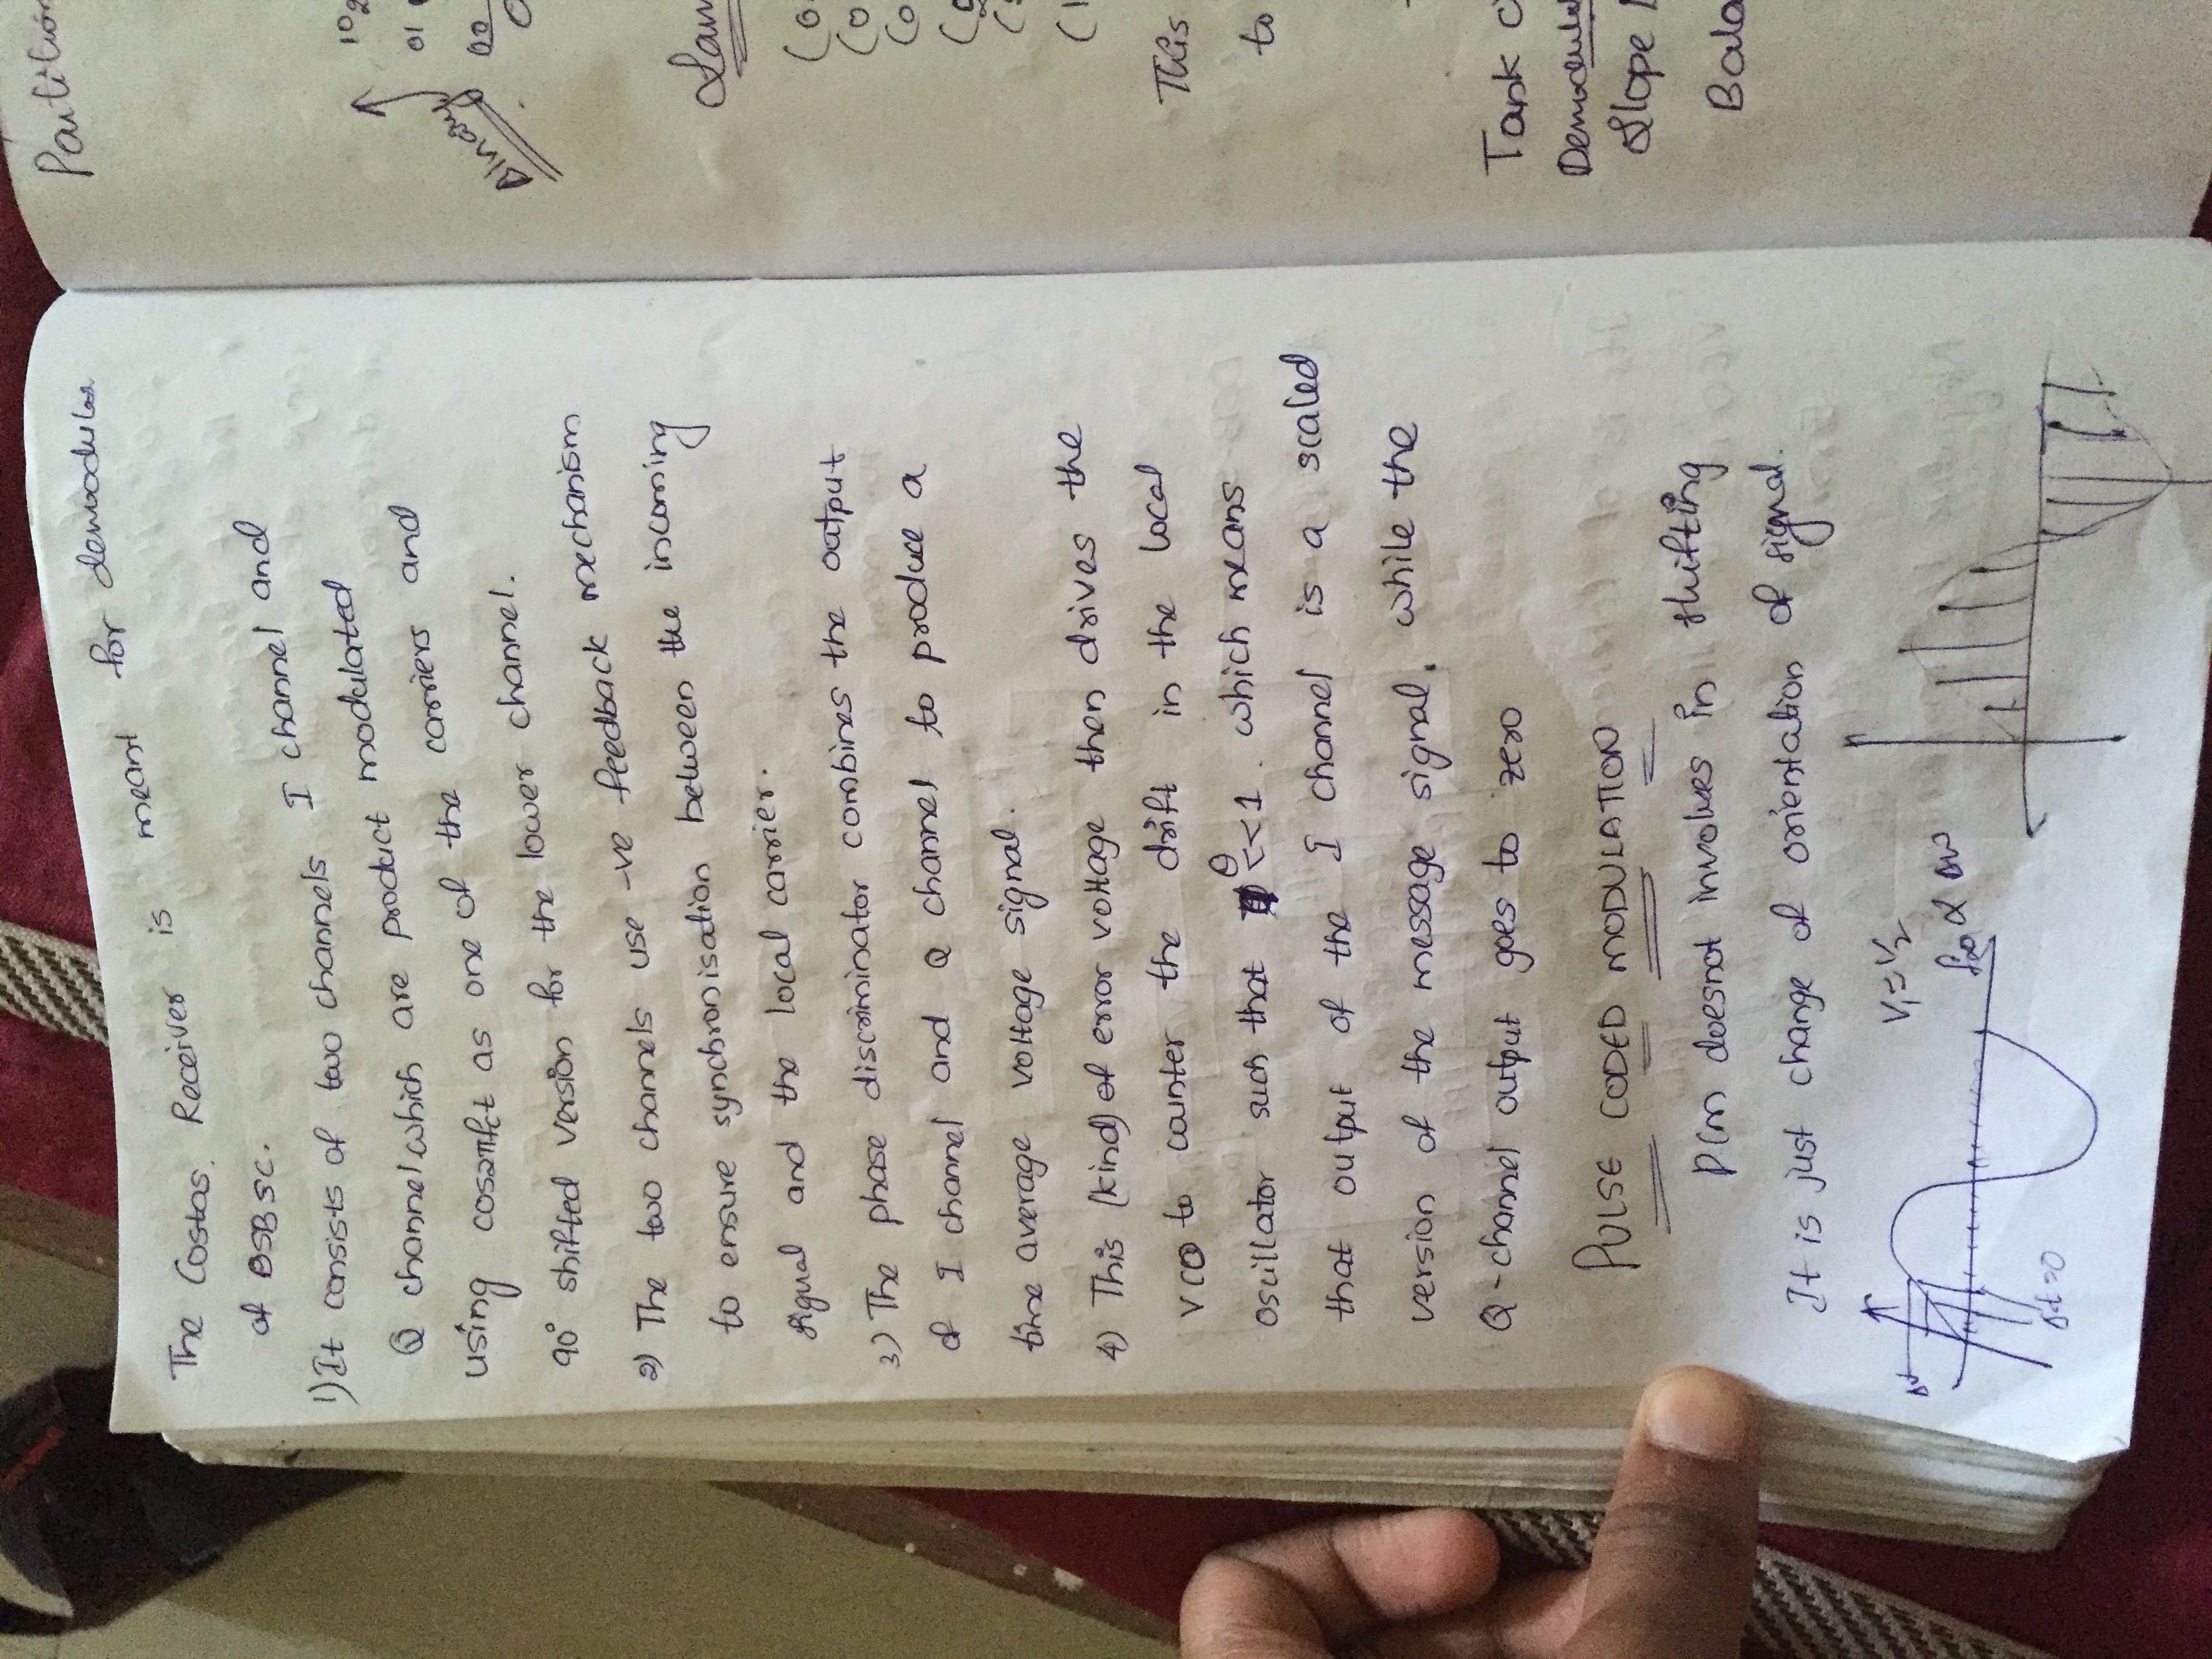 The Costas. Receiver is meant for demodulation
of DSBSC.
1) It consists of two channels I channel and
Q channel which are product modulated
using cos2πfct as one of the carriers and
90° shifted version for the lower channel.
2) The two channels use -ve feedback mechanism
to ensure synchronisation between the incoming
signal and the local carrier.
3) The phase discriminator combines the output
of I channel and Q channel to produce a
time average voltage signal.
4) This (kind) of error voltage then drives the
VCO to counter the drift in the local
oscillator such that θ <<1. which means
that output of the I channel is a scaled
version of the message signal. while the
Q-channel output goes to zero
PULSE CODED MODULATION
PCM doesnot involves in shifting
It is just change of orientation of signal.
V₁=V₂
α Δw
Δt=0
Partition
Binary
10
01
00
This
to
Tank
Slope